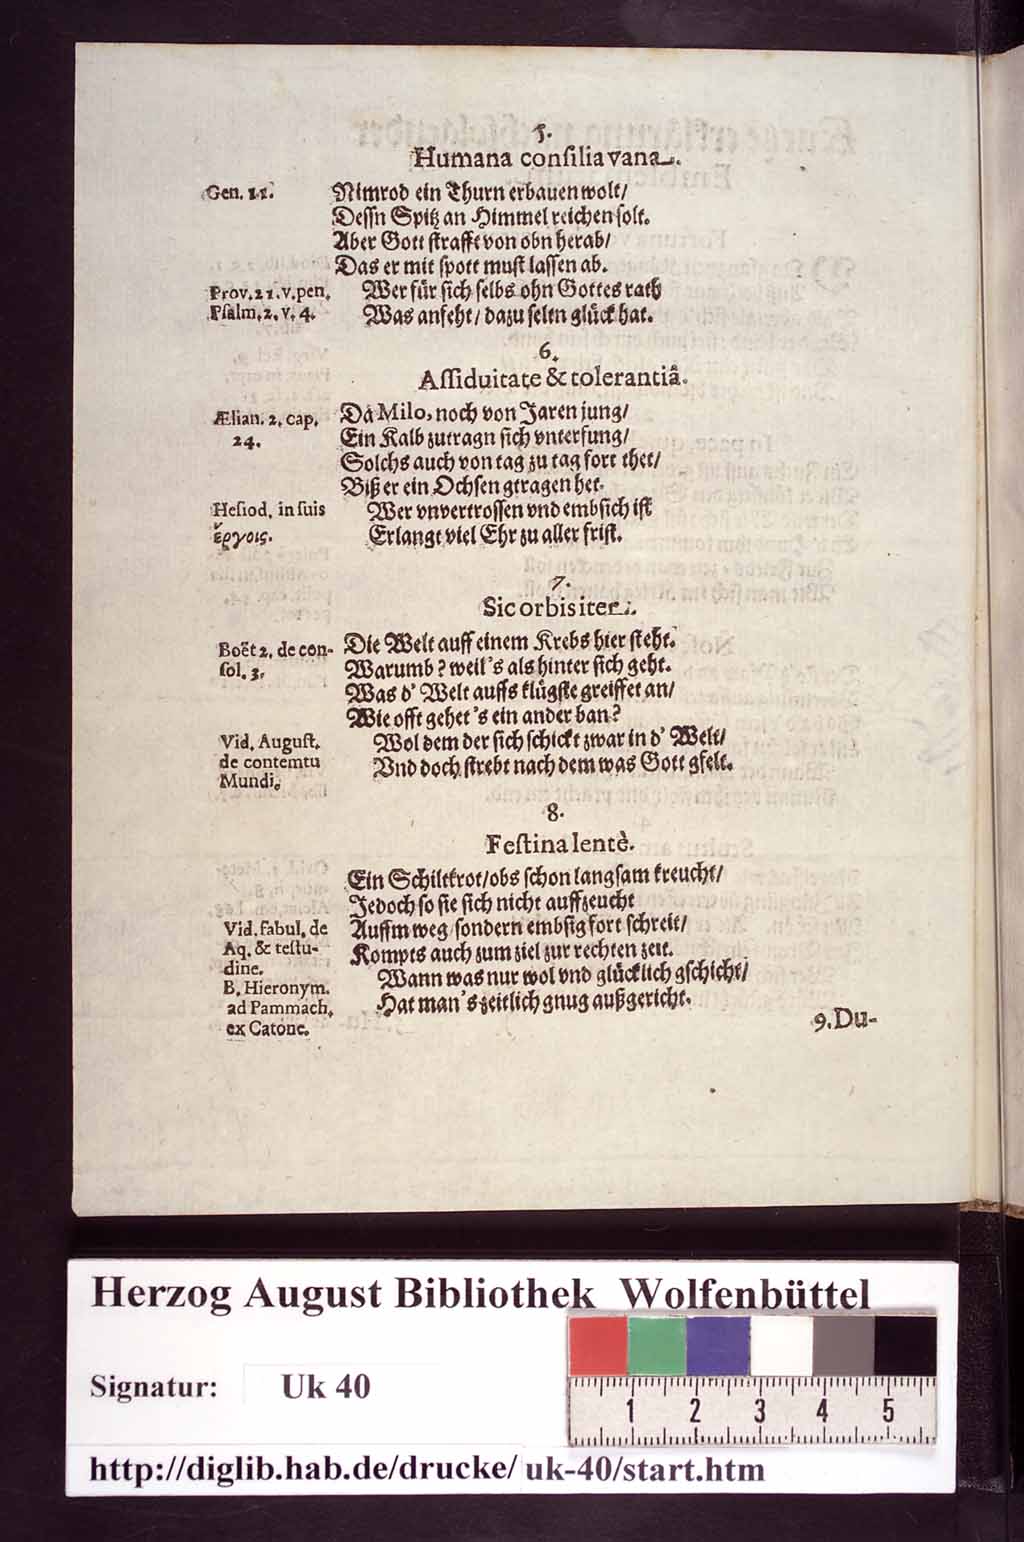 5.
Humana consilia vana.
Gen. 11.
Nimrod ein Thurn erbauen wolt/
Dessn Spitz an Himmel reichen solt.
Aber Gott strafft von obn herab/
Das er mit spott must lassen ab.
Prov. 21. v. pen.
Wer für sich selbs ohn Gottes rath
Psalm. 2. v. 4.
Was anfeht/ dazu seltn glück hat.
6.
Assiduitate & tolerantiâ.
Ælian. 2. cap.
24.
Da Milo, noch von Jaren jung/
Ein Kalb zutragn sich vnterfung/
Solchs auch von tag zu tag fort thet/
Biß er ein Ochsen getragen het.
Hesiod. in suis
ἔργοις.
Wer vnvertrossen vnd embsich ist
Erlangt viel Ehr zu aller frist.
7.
Sic orbis iter.
Boët 2. de con-
sol. 3.
Die Welt auff einem Krebs hier steht.
Warumb? weil's als hinter sich geht.
Was d' Welt auffs klügste greiffet an/
Wie offt gehet's ein ander ban?
Vid. August.
de contemtu
Mundi.
Wol dem der sich schickt zwar in d' Welt/
Vnd doch strebt nach dem was Gott gfelt.
8.
Festina lentè.
Ein Schiltkrot/ obs schon langsam kreucht/
Jedoch so sie sich nicht auffzeucht
Vid. fabul. de
Aq. & testu-
dine.
Auffm weg/ sondern embsig fort schreit/
Kompts auch zum ziel zur rechten zeit.
B. Hieronym.
ad Pammach.
ex Catone.
Wann was nur wol vnd glücklich gschicht/
Hat man's zeitlich gnug außgericht.
9. Du-
Herzog August Bibliothek Wolfenbüttel
Signatur: Uk 40
1 2 3 4 5
http://diglib.hab.de/drucke/uk-40/start.htm